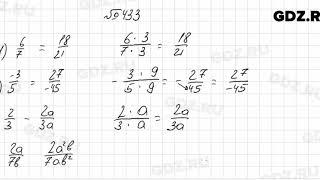 №433
GDZ.R
) 6/7 = 18/21    6·3/7·3 = 18/21
) -3/5 = 27/-45    -3·9/5·9 = -27/45 = 27/-45
2/3 - 2a/3a    2·a/3·a = 2a/3a
2a/7b    2a²b/7ab²